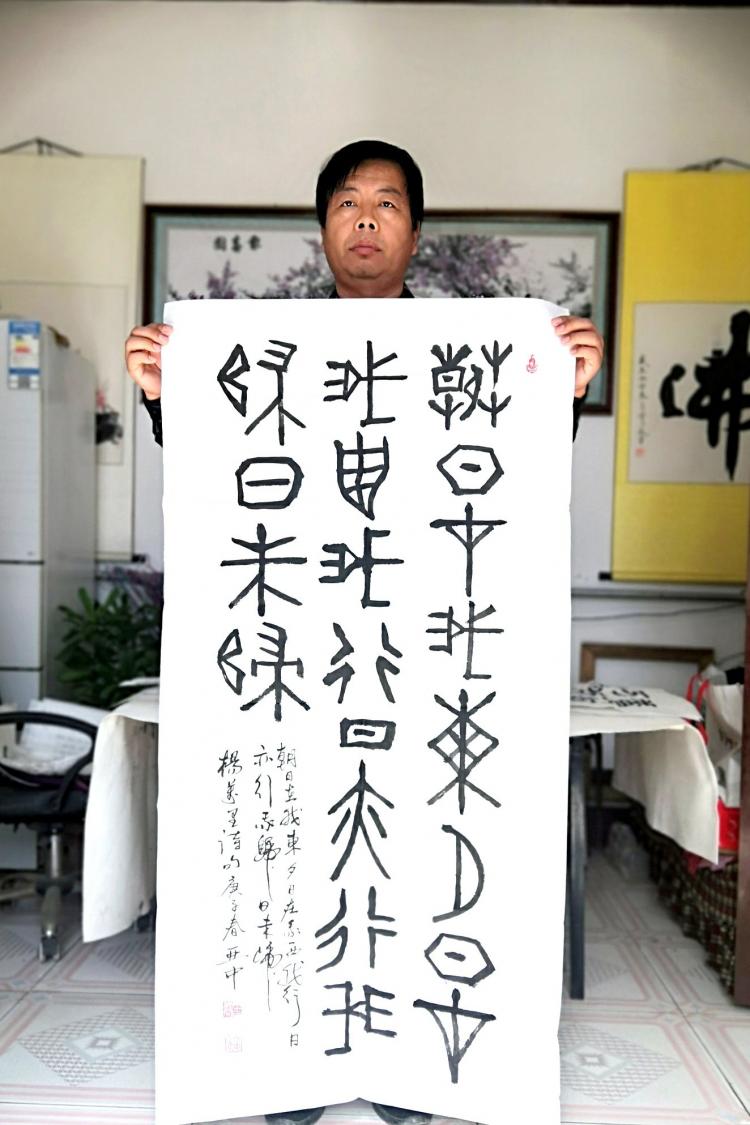 朝日在我東夕日在
我西我行日亦行我
歸日未歸
朝日在我東夕日在我西我行日
亦行我歸日未歸
楊萬里詩句庚子春亞中
佛